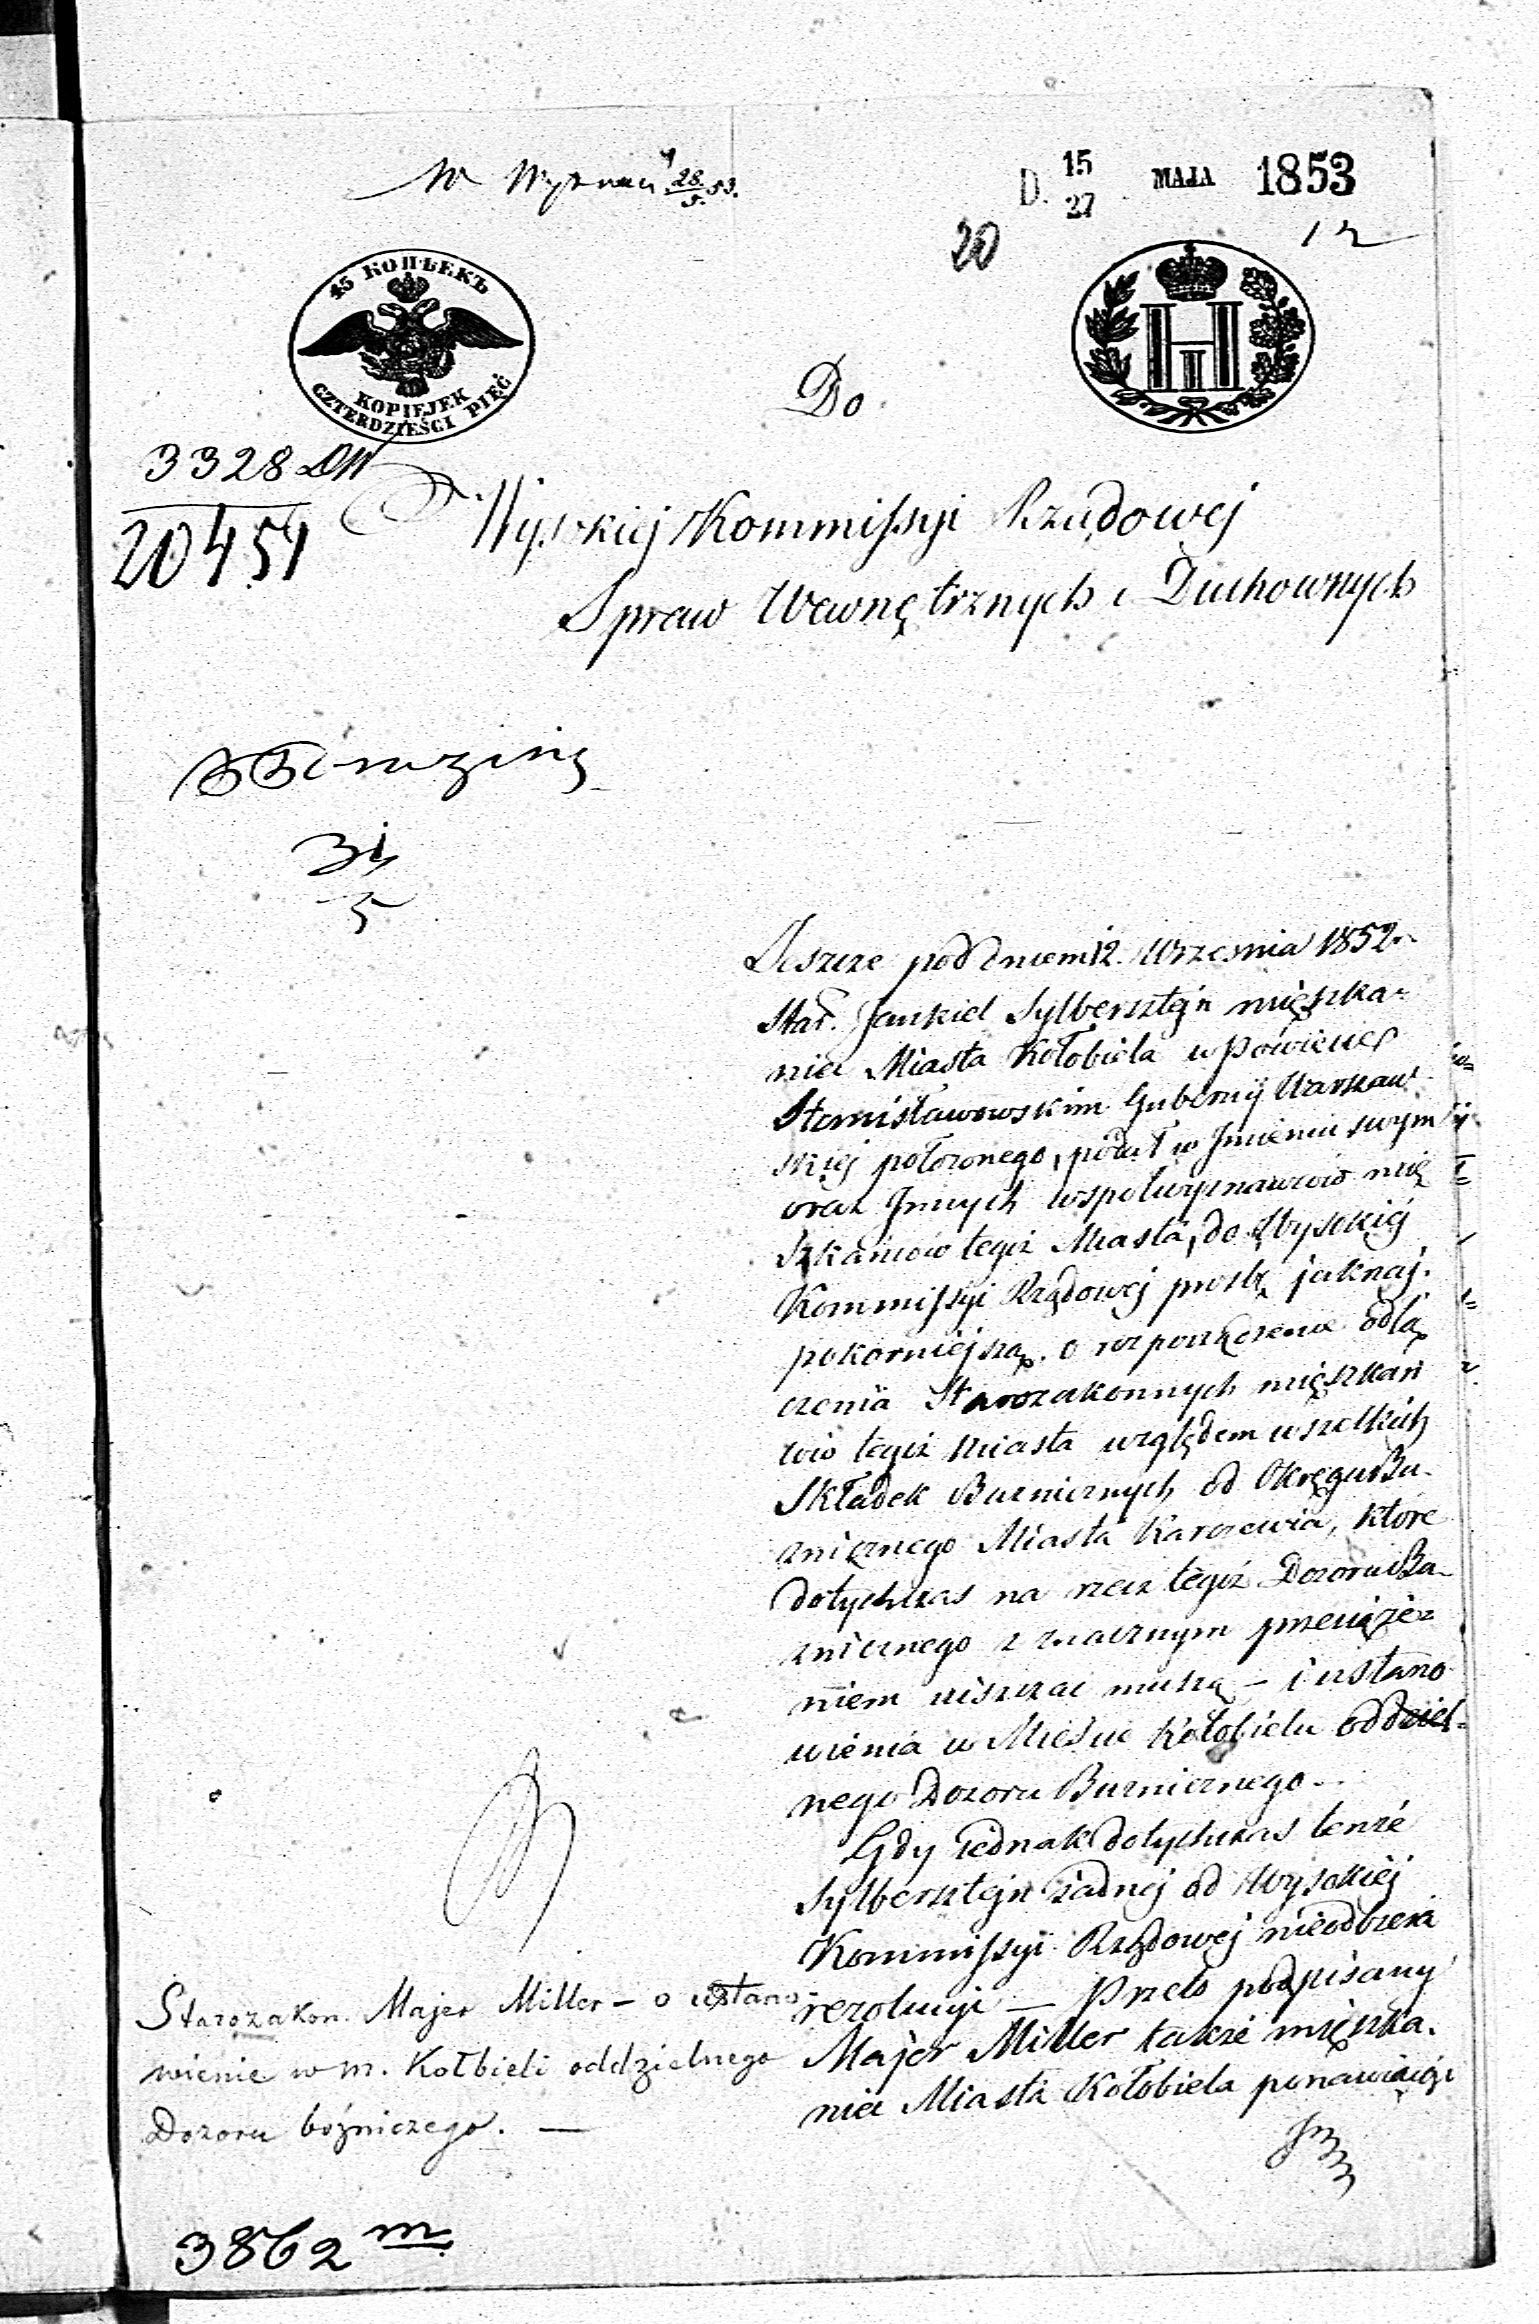 W Wyznań 28/5 53.
D. 15/27 MAJA 1853
20
12
45 КОПѢЕКЪ
KOPIEJEK
CZTERDZIEŚCI PIĘĆ
Do
3328 DW
20451
Wysokiej Kommissyi Rządowej
Spraw Wewnętrznych i Duchownych
31
5
Jeszcze pod dniem 12. Wrzesnia 1852 r.
Star. Jankiel Sylbersztejn mięszka-
niec Miasta Kołobiela w Powiecie
Stanisławowskim Gubernij Warszaw
skiej położonego, podał w Jmieniu swym
oraz Jnnych wspołwyznawców mię
szkańców tegoż Miasta, do Wysokiéj
Kommissyi Rządowej prosbę jaknaj-
pokorniejszą. o rozporządzenie odłą
czenia Starozakonnych mięszkań
ców tegoż Miasta względem wszelkich
Składek Buzniczych od Okręgu Bu-
zniczego Miasta Karczewia, które
dotychczas na rzecz tegoż Dozoru Bu-
zniczego z znacznym przeciąże-
niem uiszczać muszą – i ustano
wienia w Mieście Kołobielu oddziel-
nego Dozoru Buzniczego.
Gdy jednak dotychczas tenże
Sylbersztejn żadnéj od Wysokiéj
Kommissyi Rządowej nieodbiera
rezolucyi – Przeto podpisany
Majer Miller także mięszka-
niec Miasta Kołobiela ponawiając
Starozakon. Majer Miller – o ustano-
wienie w m. Kołbieli oddzielnego
Dozoru bóżniczego. —
3862 m